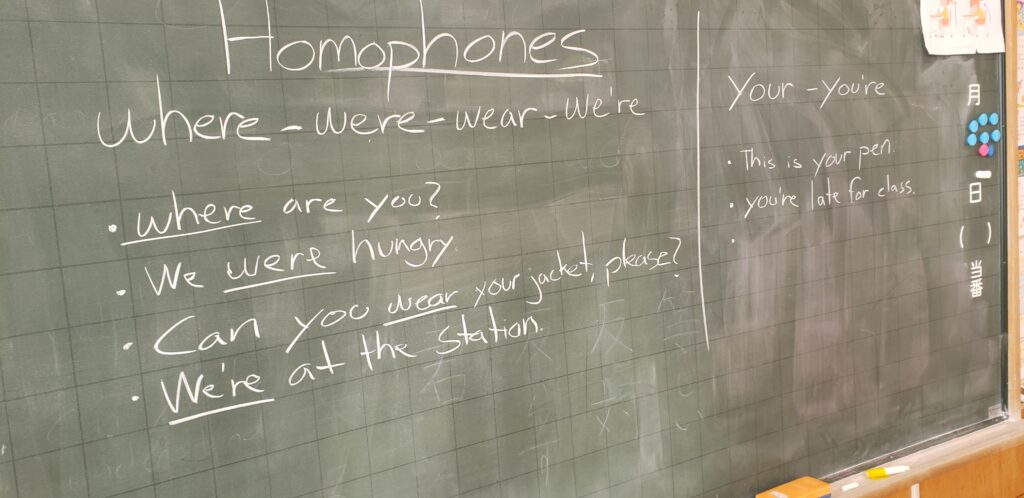 Homophones
where - were - wear - we're
• where are you?
• We were hungry.
• Can you wear your jacket, please?
• We're at the station.
Your - you're
• This is your pen.
• you're late for class.
•
月
日
( )
当番